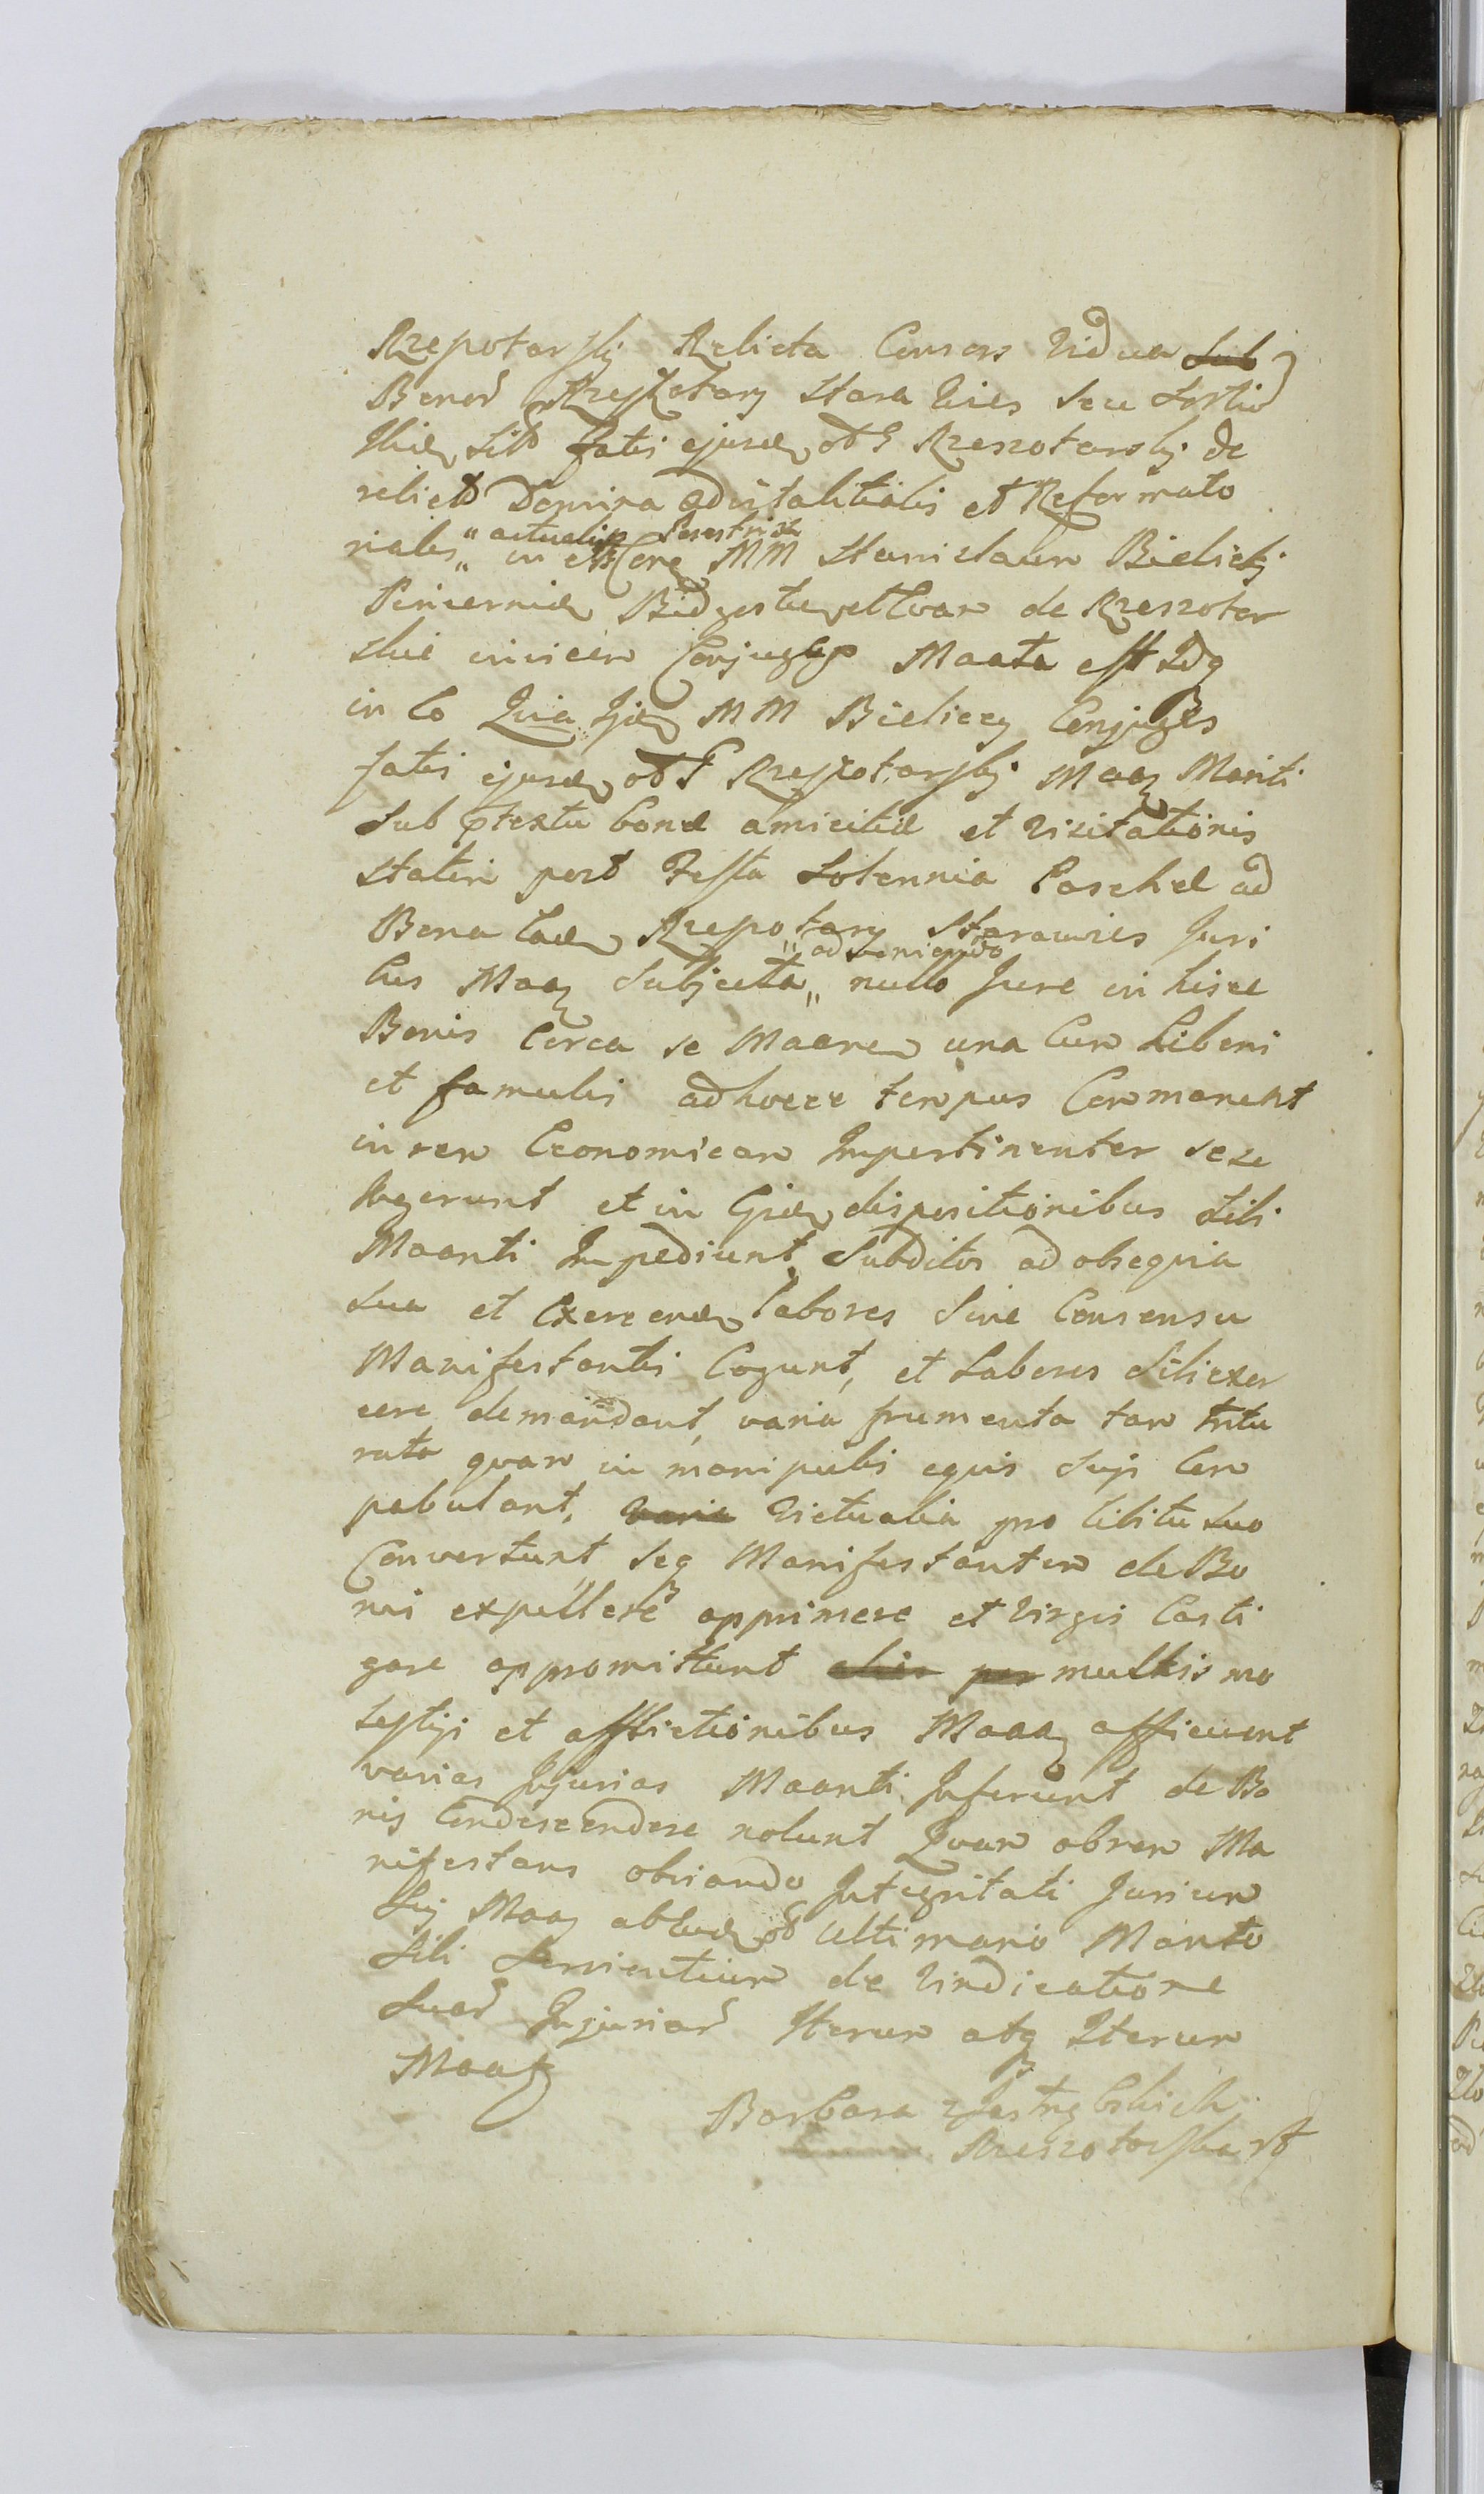 Rzeszotarskj Relicta Consors Vidua Sub
Bonor Rzeszotary Stara Wies seu Sortiu
Ibid sit fatis ejusd olG Rzeszotarskj de
relicto Domina advitalitialis et Reformato
rialis „ actualis Possestrix
in et Core MM Stanislaum Bielickj
Pincernid Bidgostu et Evam de Rzeszotar
skie invicem Conjuges Maata est Idq
in Eo Quia Iid MM Bieliccy Conjuges
fatis ejusd olG Rzeszotarskj Maaz Mariti
sub ptextu bonæ amicitiæ et visitationis
statim post Festa Solennia Paschæ ad
Bona Ead Rzeszotary Starawies Juri
bus Maaz Subjecta „ adveniendo
nullo Jure in hisce
Bonis Circa se Maanem una Cum Liberis
et famulis adhucce tempus Commanent
in rem Economicam Impertinenter sese
Ingerunt et in Ejid dispositionibus Sibi
Maanti Impediunt, Subditos ad obsequia
sua et Exercend labores Sine Consensu
Manifestantis Cogunt, et Labores Sibi exer
cere demandant, varia frumenta tam tritu
rata quam in manipulis equis Suis Com
pabulant, varia Victualia pro libitu suo
Convertunt, seq Manifestantem de Bo
nis expellere opprimere et Virgis Casti
gare appromittunt alias per multis mo
lestijs et afflictionibus Maaz afficiunt
varias Injurias Maanti Inferunt de Bo
nis Condescendere nolunt Quam obrem Ma
nifestans obviando Integritati Jurium
Suj Maaz abEod ol Ultimario Marito
Sibi Servientium de Vindicatione
Suar Injuriar Iterum atq Iterum
Maaz
Barbara z Jastrzębskich
Rzeszotarska